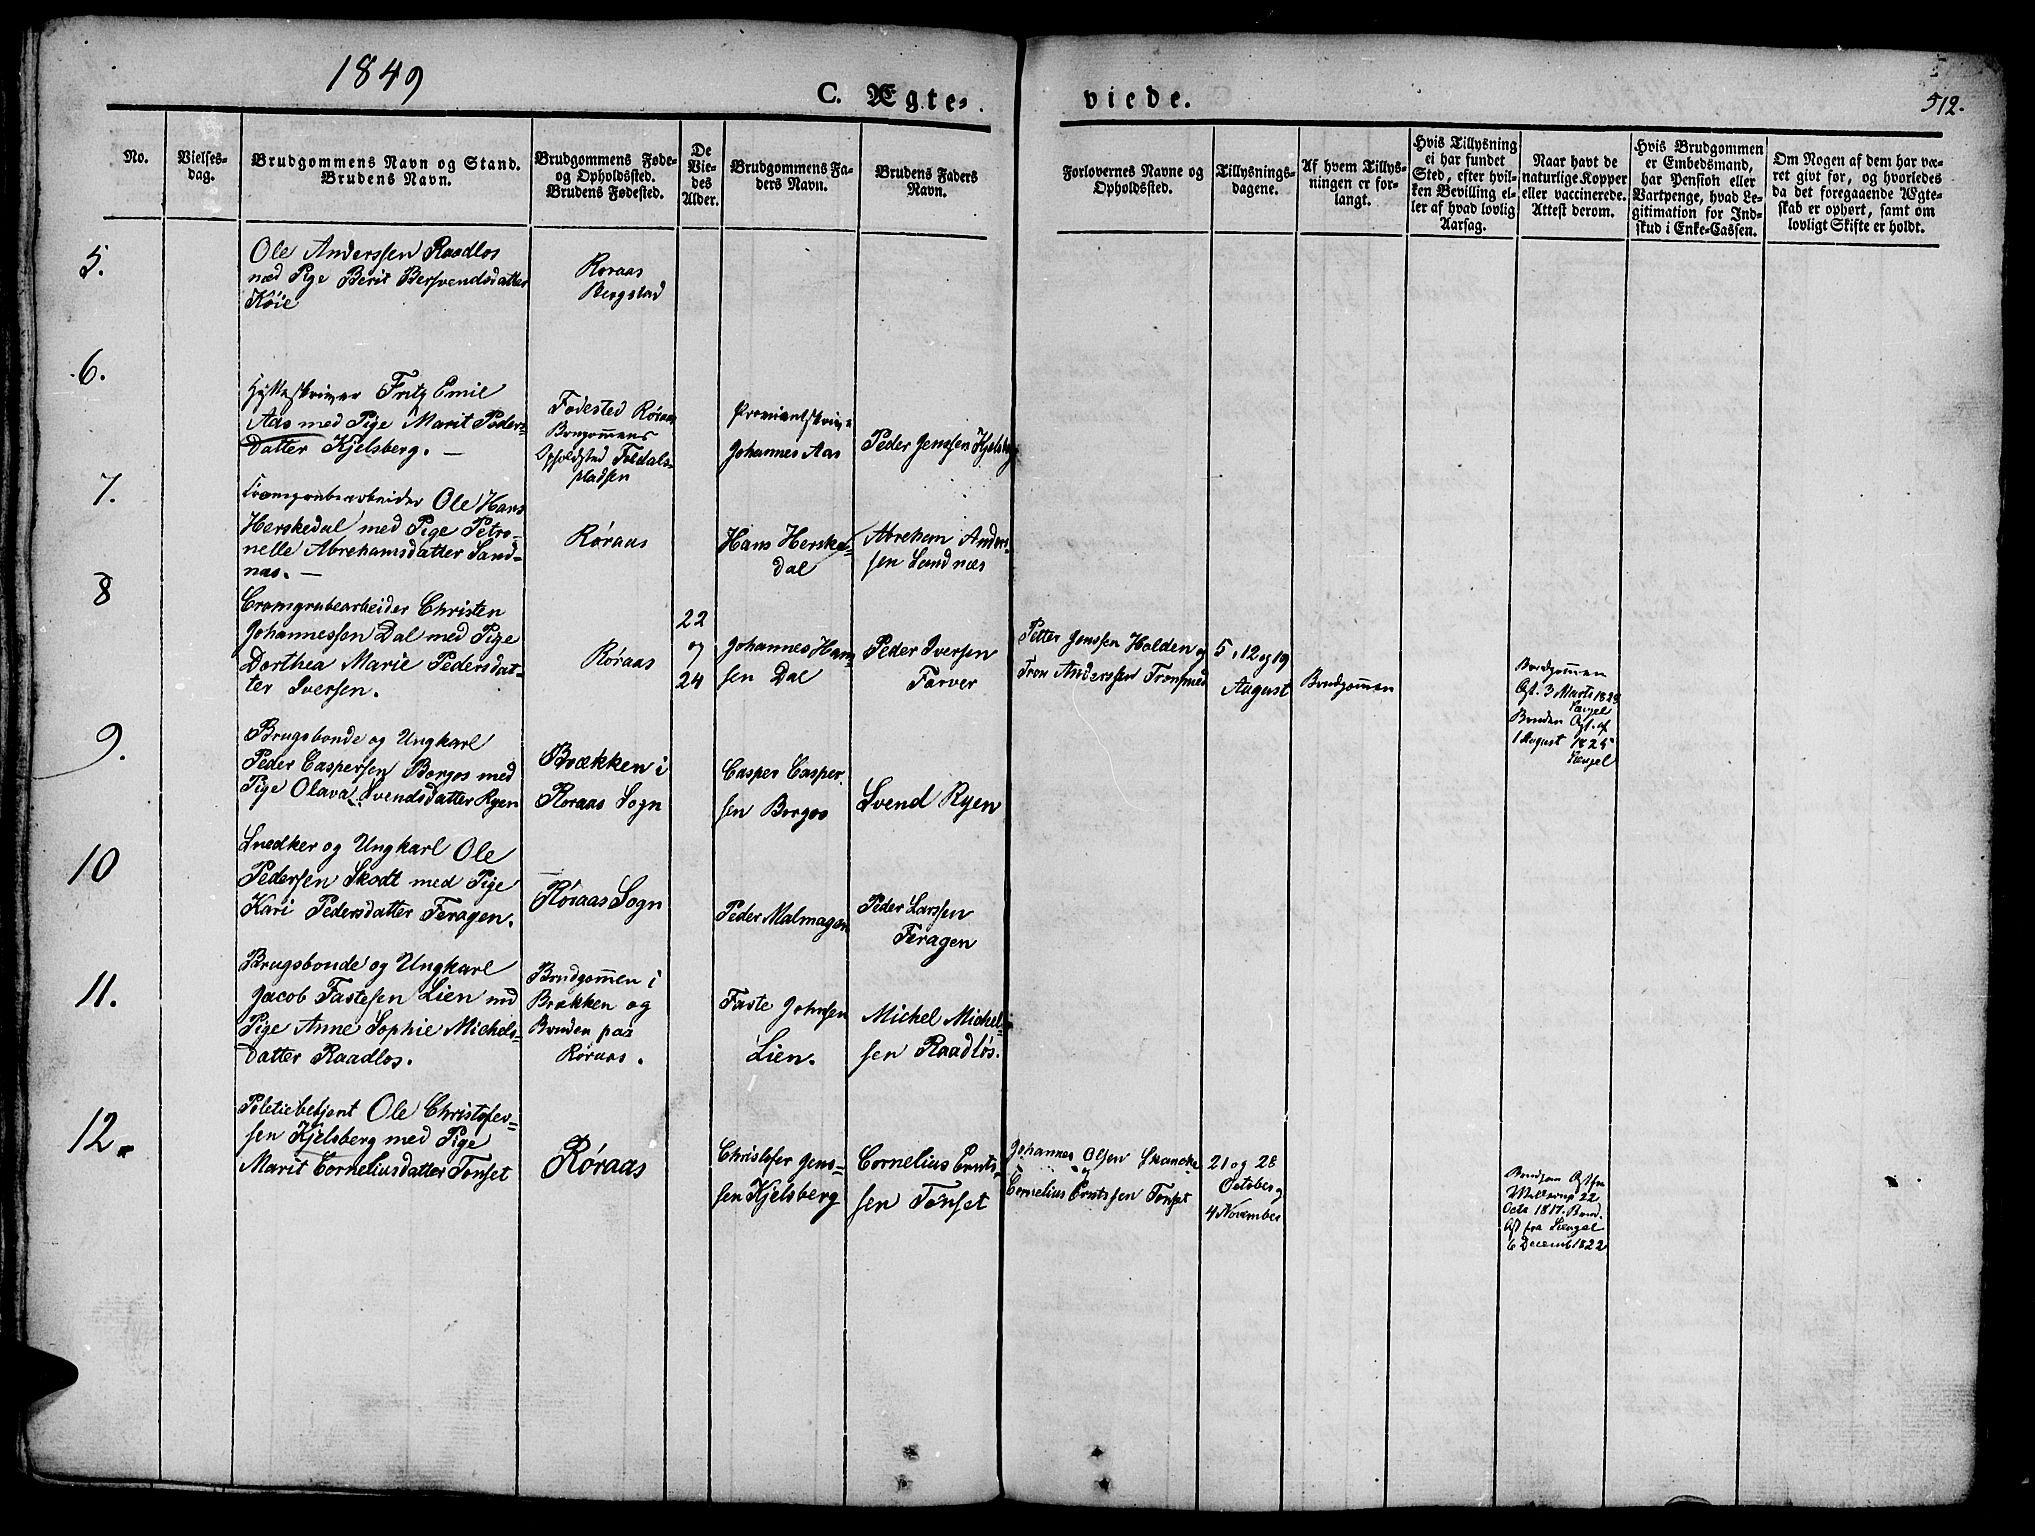 1849
C. Ægte-
viede.
512.
No.
Vielses-
dag.
Brudgommens Navn og Stand.
Brudens Navn.
Brudgommens Føde-
og Opholdssted.
Brudens Fødested.
De
Vie-
des
Alder.
Brudgommens Fa-
ders Navn.
Brudens Faders
Navn.
Forlovernes Navne og
Opholdssted.
Tillysnings-
dagene.
Af hvem Tillys-
ningen er for-
langt.
Hvis Tillysning
ei har fundet
Sted, efter hvil-
ken Bevilling el-
ler af hvad lovlig
Aarsag.
Naar havt de
naturlige Kopper
eller vaccinerede.
Attest derom.
Hvis Brudgommen
er Embedsmand,
har Pension eller
Vartpenge, hvad Le-
gitimation for Ind-
skud i Enke-Cassen.
Om Nogen af dem har væ-
ret givt før, og hvorledes
da det foregaaende Ægte-
skab er ophørt, samt om
lovligt Skifte er holdt.
5.
Ole Anderssen Raadlos
med Pige Berit Bersvendsdatter
Köie
Roraas
Bergstad
6.
Hytteskriver Fritz Emil
Aas med Pige Marit Peders-
Datter Kjelsberg. —
Fødested Røraas
Brugommens
Opholdsted Foldals-
pladsen
Proviantskriver
Johannes Aas
Peder Jenssen Kjelsberg
7.
Cromgrubearbeider Ole Hans
Herskedal med Pige Petro-
nelle Abrehamsdatter Sand-
næs. —
Røraas
Hans Herske-
dal
Abrehem Anders-
sen Sandnæs
8
Cromgrubearbeider Christen
Johannessen Dal med Pige
Dorthea Marie Pedersdat-
ter Iversen.
Røraas
22
og
24
Johannes Han-
sen Dal
Peder Iversen
Farver
Petter Jonssen Holden og
Tron Anderssen Tronsmed
5, 12 og 19
August
Brudgommen
Brudgommen
Att. 3 Marts 1828
Vængel
Bruden Att. af
1 August 1825
Vængel
9.
Brugsbonde og Ungkarl
Peder Caspersen Borgos med
Pige Olava Svendsdatter Ryen
Brækken i
Røraas Sogn
Casper Casper-
sen Borgos
Svend Ryen
10
Snedker og Ungkarl Ole
Pedersen Skodt med Pige
Kari Pedersdatter Feragen.
Røraas Sogn
Peder Malmagen
Peder Larssen
Feragen
11.
Brugsbonde og Ungkarl
Jacob Fastesen Lien med
Pige Anne Sophie Michels-
datter Raadlos.
Brudgommen i
Brækken og
Bruden paa
Røraas.
Faste Johnsen
Lien.
Michel Michel-
sen Raadlos.
12.
Poletiebetjent Ole Christofer-
sen Kjelsberg med Pige
Marit Corneliusdatter Tonset
Røraas
Christofer Jens-
sen Kjelsberg
Cornelius Ernts-
sen Tonset
Johannes Olsen Skancke
og
Cornelius Erntssen Tonset
21 og 28
October og
4 November
22
Octo 1817. Brud.
Att fra Vængel
6 Decemb 1822